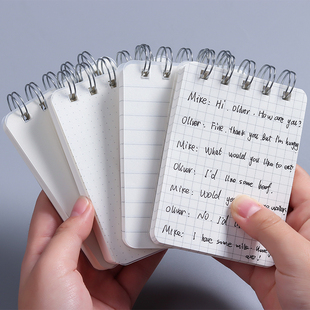 Mike: Hi, Oliver. How are you?
Oliver: Fine thank you. But I'm hungry
Mike: What would you like to eat
Oliver: I'd like some beef.
Mike: Would you
Oliver: No. I'd
Mike: I have some milk.